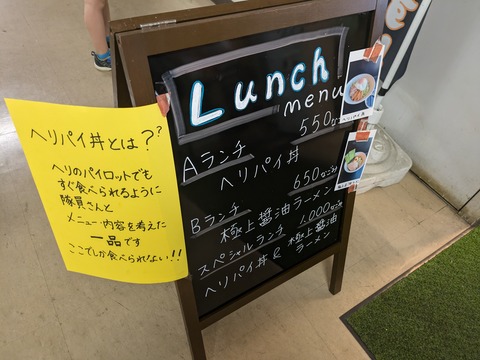 Lunch
menu
Aランチ 550
ヘリパイ丼
Bランチ 650
極上醤油ラーメン
スペシャルランチ 1,000
ヘリパイ丼 & 極上醤油
ラーメン
ヘリパイ丼とは??
ヘリのパイロットでも
すぐ食べられるように
隊員さんと
メニュー・内容を考えた
一品です
ここでしか食べられない!!